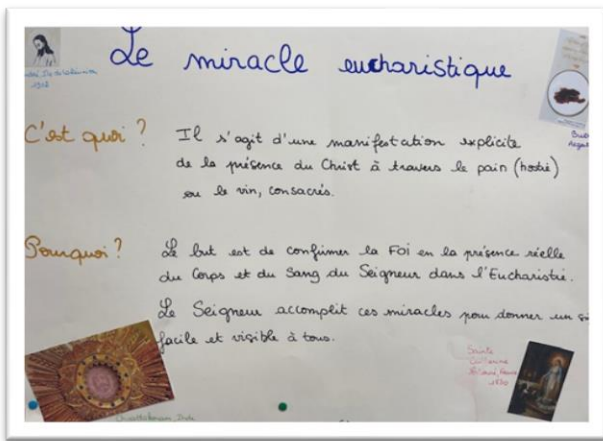 Le miracle eucharistique
1902
C'est quoi ?
Il s'agit d'une manifestation explicite
de la présence du Christ à travers le pain (hostie)
ou le vin, consacrés.
Pourquoi ?
Le but est de confirmer la Foi en la présence réelle
du Corps et du Sang du Seigneur dans l'Eucharistie.
Le Seigneur accomplit ces miracles pour donner un
facile et visible à tous.
Sainte
1830